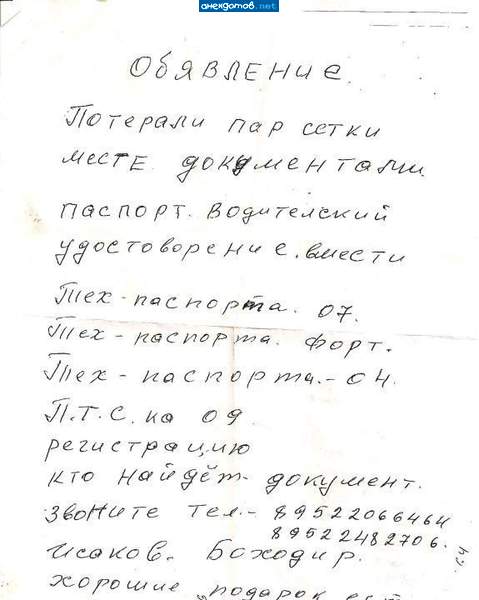 анекдотов.net
Обявление
Потерали пар сетки
месте документами.
паспорт. водителский
удостоворение. вмести
Тех-паспорта. 07.
Тех-паспорта. форт.
Тех-паспорта.-04.
П.Т.С. на 09
регистрацию
кто найдёт документ.
звоните тел.- 89522066464
89522482706.
Исаков. Боходир.
хорошие подарок